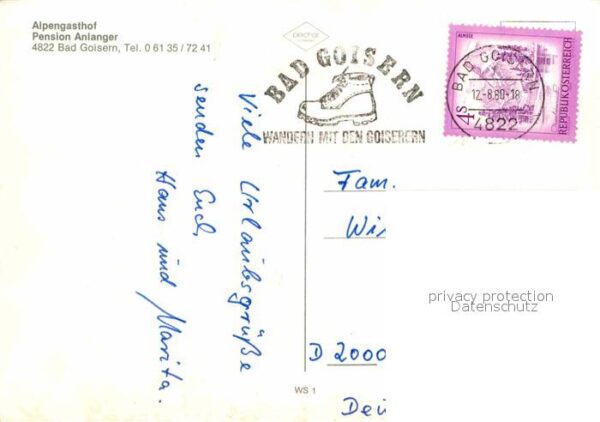 Alpengasthof
Pension Anlanger
4822 Bad Goisern, Tel. 0 61 35 / 72 41
BAD GOISERN
WANDERN MIT DEN GOISERERN
BAD GOISERN
12.-8.80-18
4822
ALMSEE
4S
REPUBLIK ÖSTERREICH
Viele Urlaubsgrüße
senden Euch,
Hans und Marita.
Fam.
Wi
D 2000
WS 1
privacy protection
Datenschutz